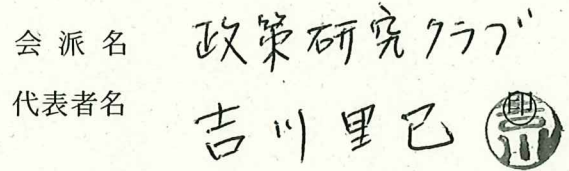 会派名 政策研究クラブ
代表者名 吉川里己 印